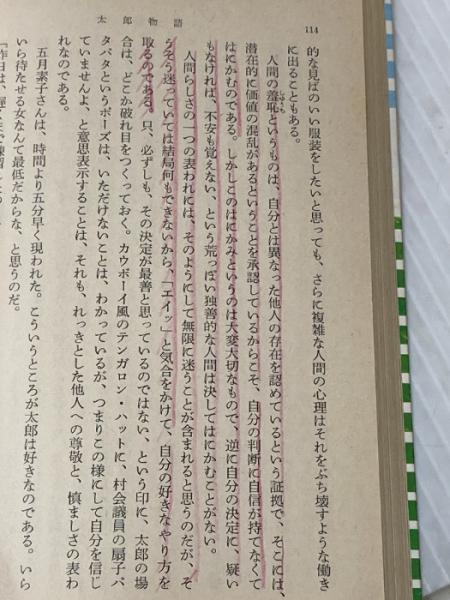 114
太郎物語
的な見ばのいい服装をしたいと思っても、さらに複雑な人間の心理はそれをぶち壊すような働き
に出ることもある。
人間の羞恥というものは、自分とは異なった他人の存在を認めているという証拠で、そこには、
潜在的に価値の混乱があるということを承認しているからこそ、自分の判断に自信が持てなくて
はにかむのである。しかしこのはにかみというのは大変大切なもので、逆に自分の決定に、疑い
もなければ、不安も覚えない、という荒っぽい独善的な人間は決してはにかむことがない。
人間らしさの一つの表われには、そのようにして無限に迷うことが含まれると思うのだが、そ
うそう迷っていては結局何もできないから、「エイッ」と気合をかけて、自分の好きなやり方を
取るのである。只、必ずしも、その決定が最善と思っているのではない、という印に、太郎の場
合は、どこか破れ目をつくっておく。カウボーイ風のテンガロン・ハットに、村会議員の扇子パ
タパタというポーズは、いただけないことは、わかっているが、つまりこの様にして自分を信じ
ていませんよ、と意思表示することは、それも、れっきとした他人への尊敬と、慎ましさの表わ
れなのである。
五月素子さんは、時間より五分早く現われた。こういうところが太郎は好きなのである。いら
いら待たせる女なんて最低だからな、と思うのだ。
「昨日は、